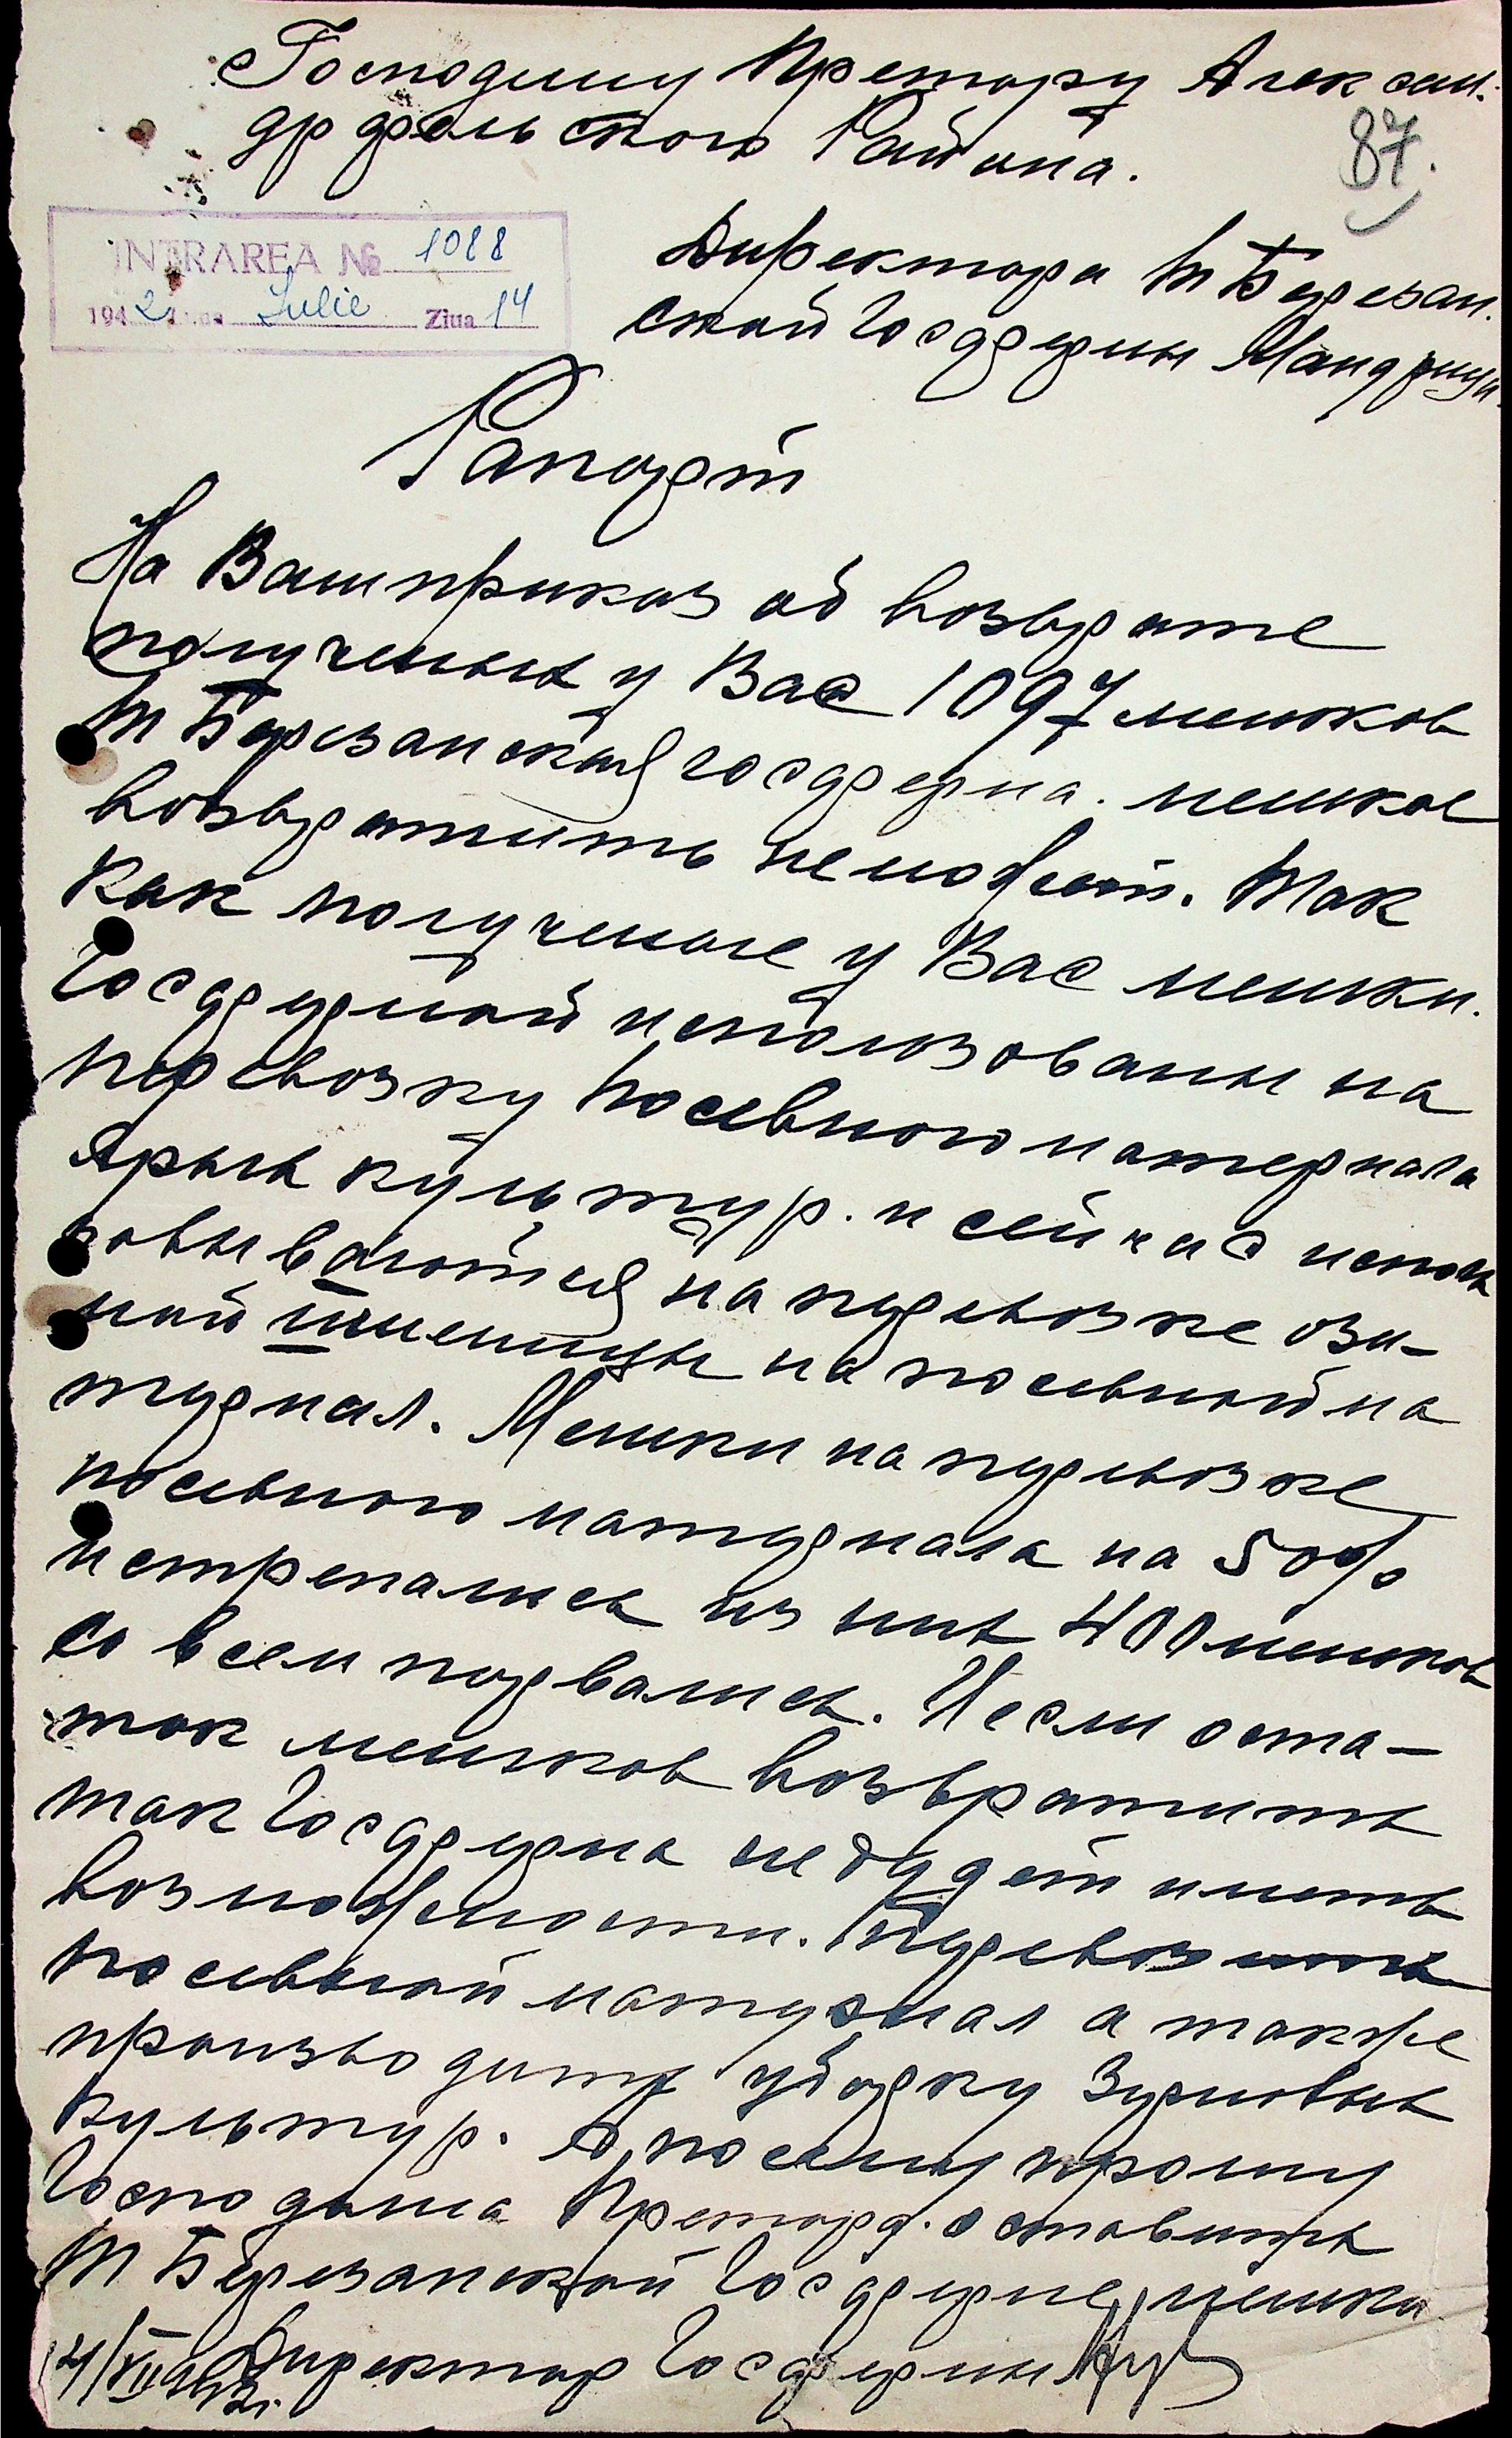 Господину Претору Алексан-
дрфельского Района.
87.
INTRAREA № 1088
1942 Iulie Ziua 14
Директора Т Березан.
ской Госфермы
Рапорт
На Ваш приказ об возврате
полученых у Вас 1097 мешков
Т Березанская госферма. мешков
возвратить неможет. Так
как полученые у Вас мешки.
Госфермой исползованы на
перевозку посевного материала
Ярых культур. и сейчас исполь
зовываются на перевозке ози-
мой пшеницы на посевной ма
териал. Мешки на перевозке
посевного материала на 50%
истрепались из них 400 мешков
со всем порвались. И если оста-
ток мешков возвратить
так Госферма не будет иметь
возможности. перевозить
посевной материал а также
производить уборку Зерновых
культур. А посему прошу
Господина Претора. оставить
Т Березанской Госферме мешки
14/VII 42г. Директор Госфермы